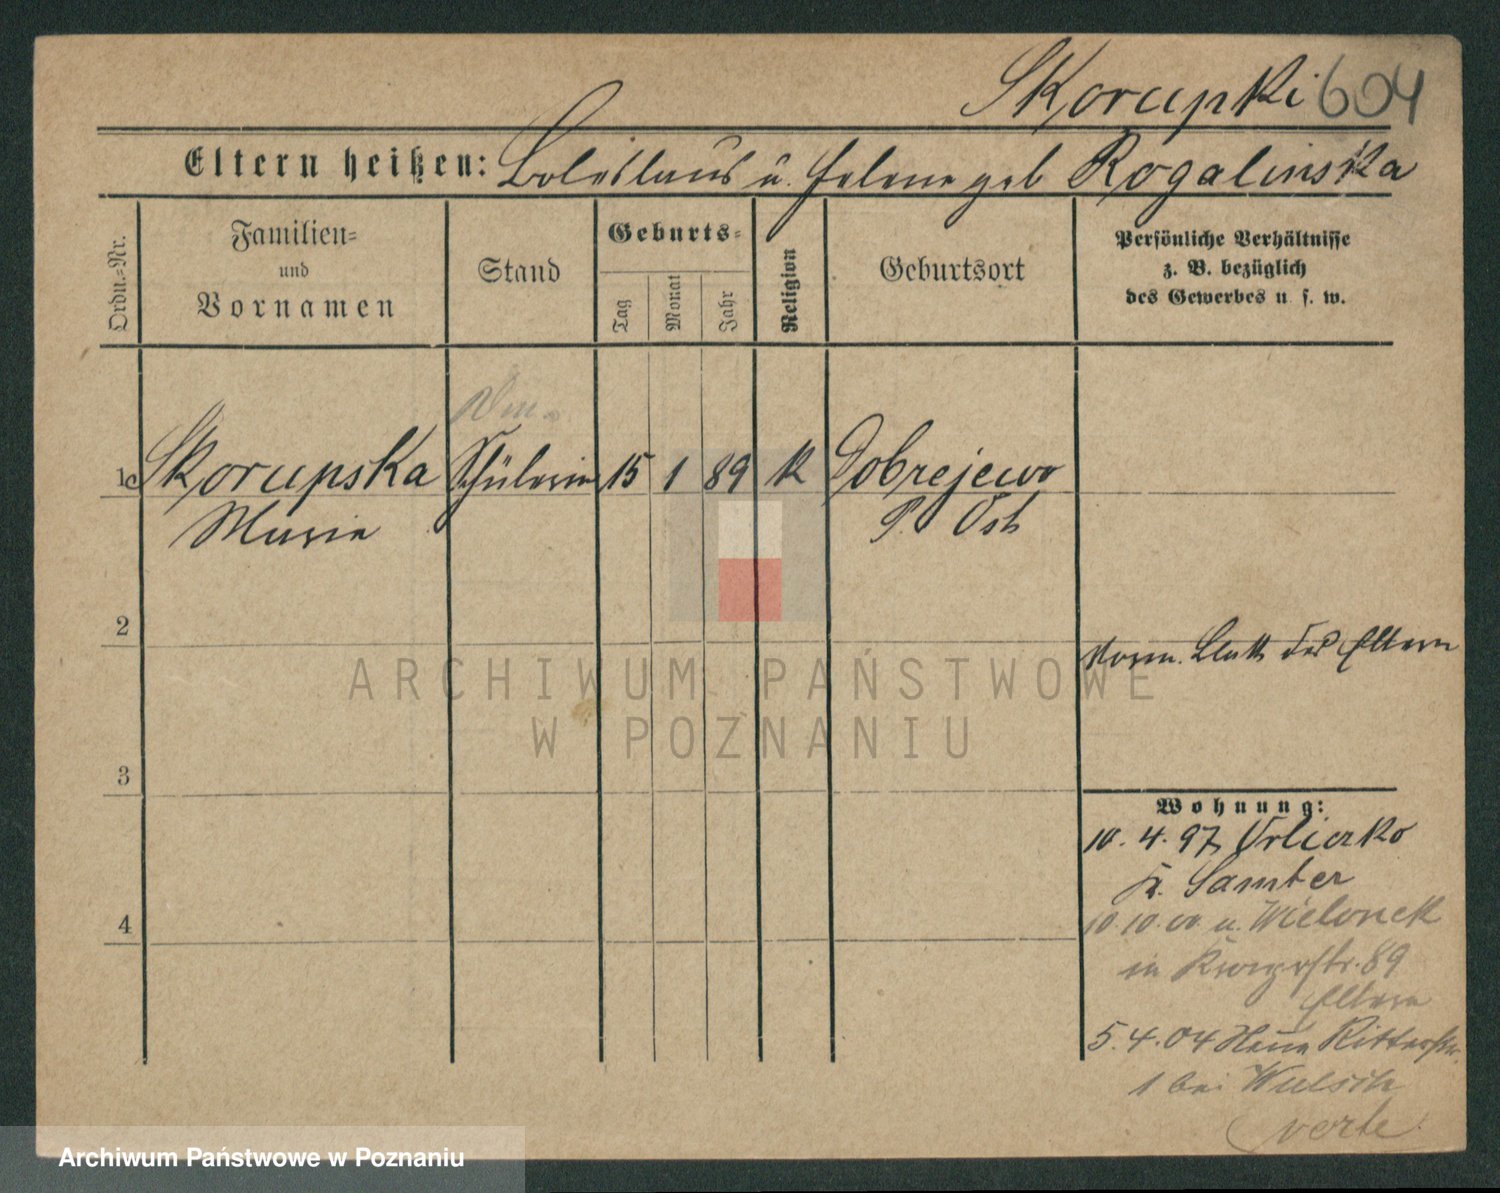 Skorupki 604
Eltern heißen: Boleslaus u. Helene geb Rogalinska
Ordn.=Nr.
Familien=
und
Vornamen
Stand
Geburts=
Tag
Monat
Jahr
Religion
Geburtsort
Persönliche Verhältnisse
z. B. bezüglich
des Gewerbes u. s. w.
1 Skorupska Schülerin 15 1 89 K Dobrejewo
Maria P. Ost
2
vorm. Blatt der Eltern
ARCHIWUM PAŃSTWOWE
W POZNANIU
3
Wohnung:
10. 4. 97
K. Samter
4
10. 10. 00 n.
in 89
Eltern
5. 4. 04 Ritterstr.
1 bei
verte
Archiwum Państwowe w Poznaniu